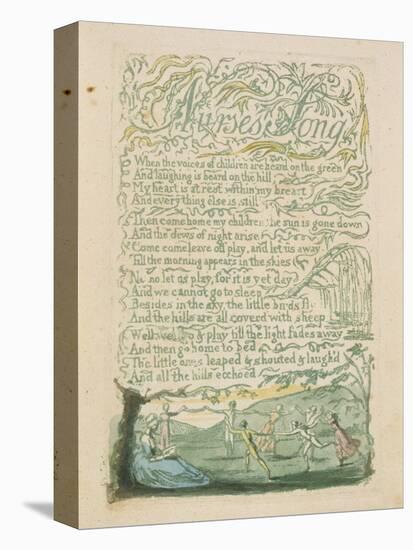 Nurses Song
When the voices of children are heard on the green
And laughing is heard on the hill
My heart is at rest within my breast
And every thing else is still
Then come home my children the sun is gone down
And the dews of night arise
Come come leave off play, and let us away
Till the morning appears in the skies
No no let us play, for it is yet day
And we cannot go to sleep
Besides in the sky, the little birds fly
And the hills are all coverd with sheep
Well well go & play till the light fades away
And then go home to bed
The little ones leaped & shouted & laugh'd
And all the hills ecchoed